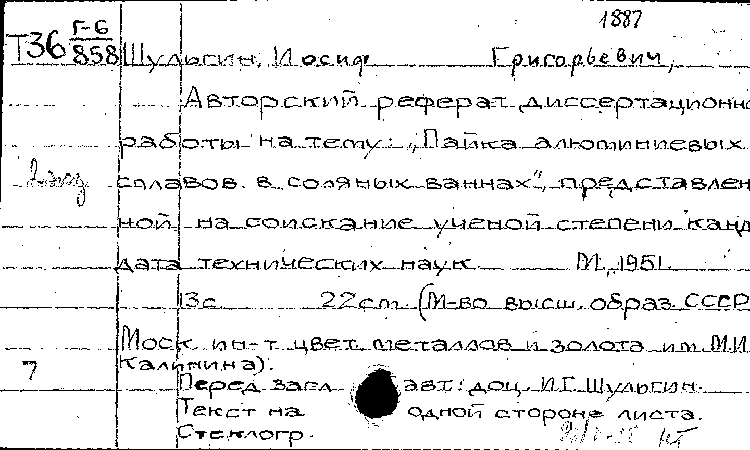 1887
Т36 Г-6
858
Шульгин, Иосиф Григорьевич,
Авторский реферат диссертационно
работы на тему: „Пайка алюминиевых
2 экз
сплавов в соляных ваннах", представлен
ной на соискание ученой степени канд
дата технических наук М., 1951.
13с. 22см. (М-во высш. образ. СССР
Моск. ин-т цвет. металлов и золота им. М.И.
7
Калинина).
Перед загл. авт: доц. И.Г. Шульгин.
Текст на одной стороне листа.
Стеклогр.